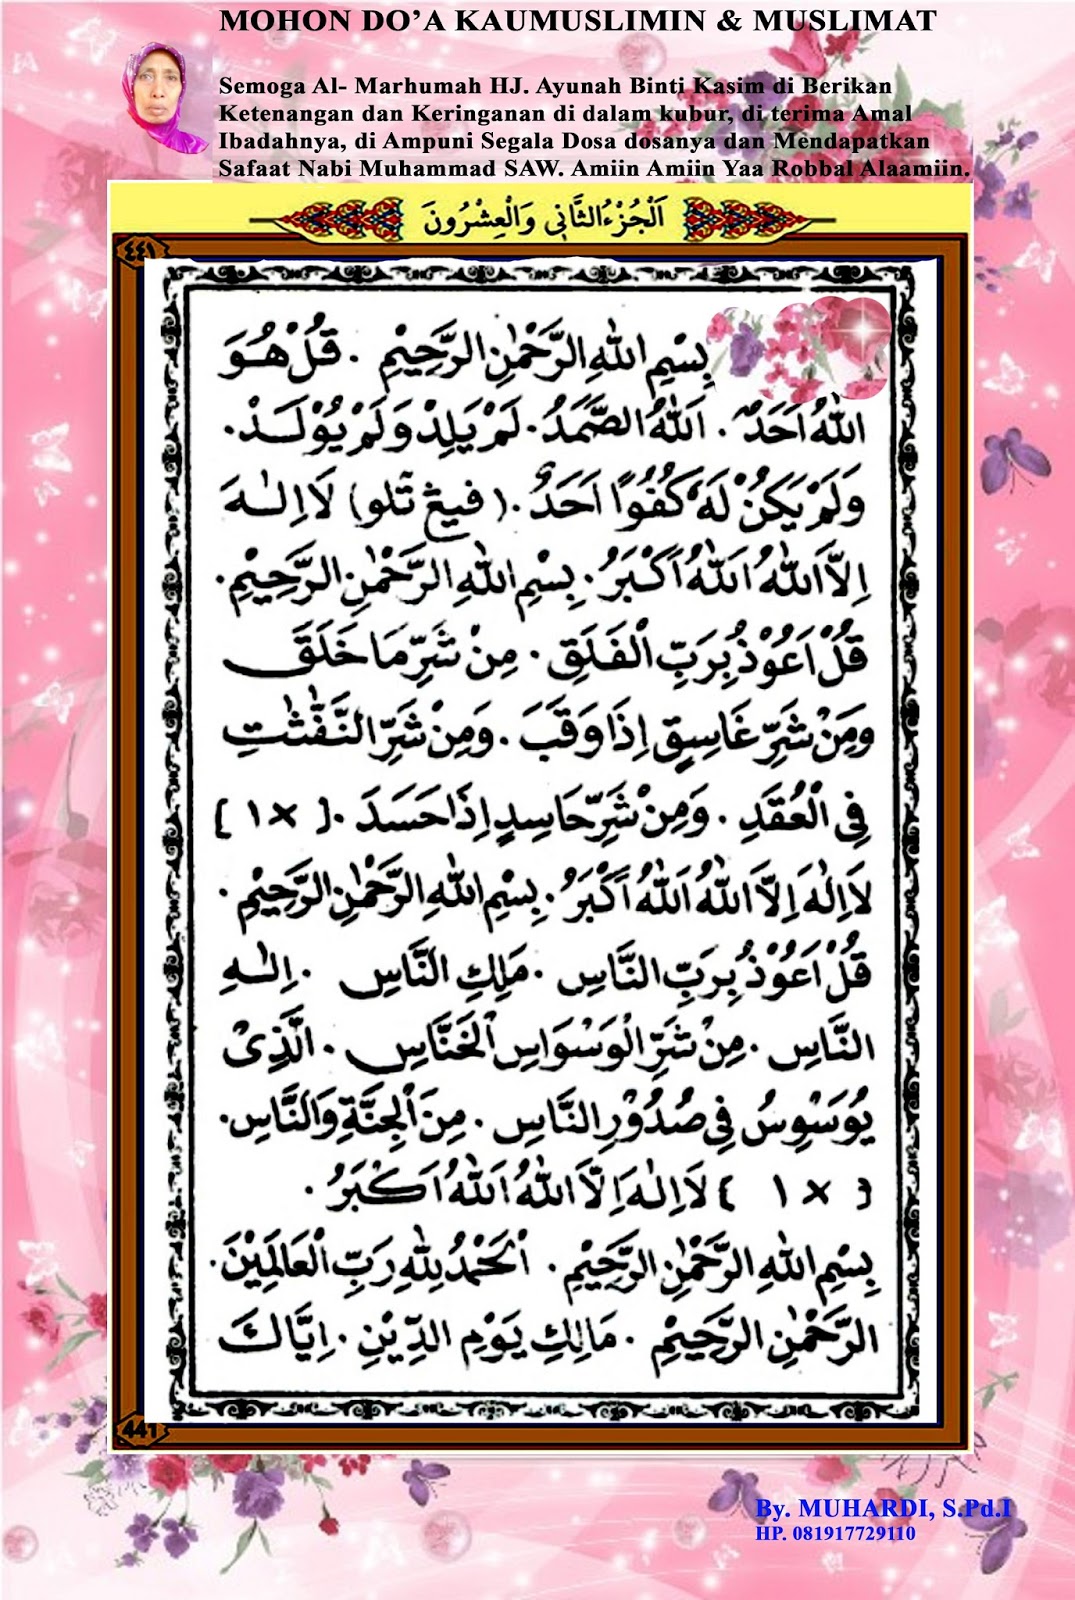 MOHON DO'A KAUMUSLIMIN & MUSLIMAT
Semoga Al- Marhumah HJ. Ayunah Binti Kasim di Berikan
Ketenangan dan Keringanan di dalam kubur, di terima Amal
Ibadahnya, di Ampuni Segala Dosa dosanya dan Mendapatkan
Safaat Nabi Muhammad SAW. Amiin Amiin Yaa Robbal Alaamiin.
اَلْجُزْءُ الثَّانِي وَالْعِشْرُونَ
٤٤١
بِسْمِ اللهِ الرَّحْمٰنِ الرَّحِيْمِ . قُلْ هُوَ
اللهُ اَحَدٌ . اَللهُ الصَّمَدُ . لَمْ يَلِدْ وَلَمْ يُوْلَدْ .
وَلَمْ يَكُنْ لَهُ كُفُوًا اَحَدٌ . ( فيڠ تلو ) لَا اِلٰهَ
اِلَّا اللهُ اَللهُ اَكْبَرُ . بِسْمِ اللهِ الرَّحْمٰنِ الرَّحِيْمِ .
قُلْ اَعُوْذُ بِرَبِّ الْفَلَقِ . مِنْ شَرِّ مَا خَلَقَ
وَمِنْ شَرِّ غَاسِقٍ اِذَا وَقَبَ . وَمِنْ شَرِّ النَّفّٰثٰتِ
فِى الْعُقَدِ . وَمِنْ شَرِّ حَاسِدٍ اِذَا حَسَدَ . { ١ × }
لَا اِلٰهَ اِلَّا اللهُ اَللهُ اَكْبَرُ . بِسْمِ اللهِ الرَّحْمٰنِ الرَّحِيْمِ .
قُلْ اَعُوْذُ بِرَبِّ النَّاسِ . مَلِكِ النَّاسِ . اِلٰهِ
النَّاسِ . مِنْ شَرِّ الْوَسْوَاسِ الْخَنَّاسِ . الَّذِىْ
يُوَسْوِسُ فِى صُدُوْرِ النَّاسِ . مِنَ الْجِنَّةِ وَالنَّاسِ .
{ × ١ } لَا اِلٰهَ اِلَّا اللهُ اَللهُ اَكْبَرُ .
بِسْمِ اللهِ الرَّحْمٰنِ الرَّحِيْمِ . اَلْحَمْدُ لِلّٰهِ رَبِّ الْعَالَمِيْنَ .
الرَّحْمٰنِ الرَّحِيْمِ . مَالِكِ يَوْمِ الدِّيْنِ . اِيَّاكَ
441
By. MUHARDI, S.Pd.I
HP. 081917729110